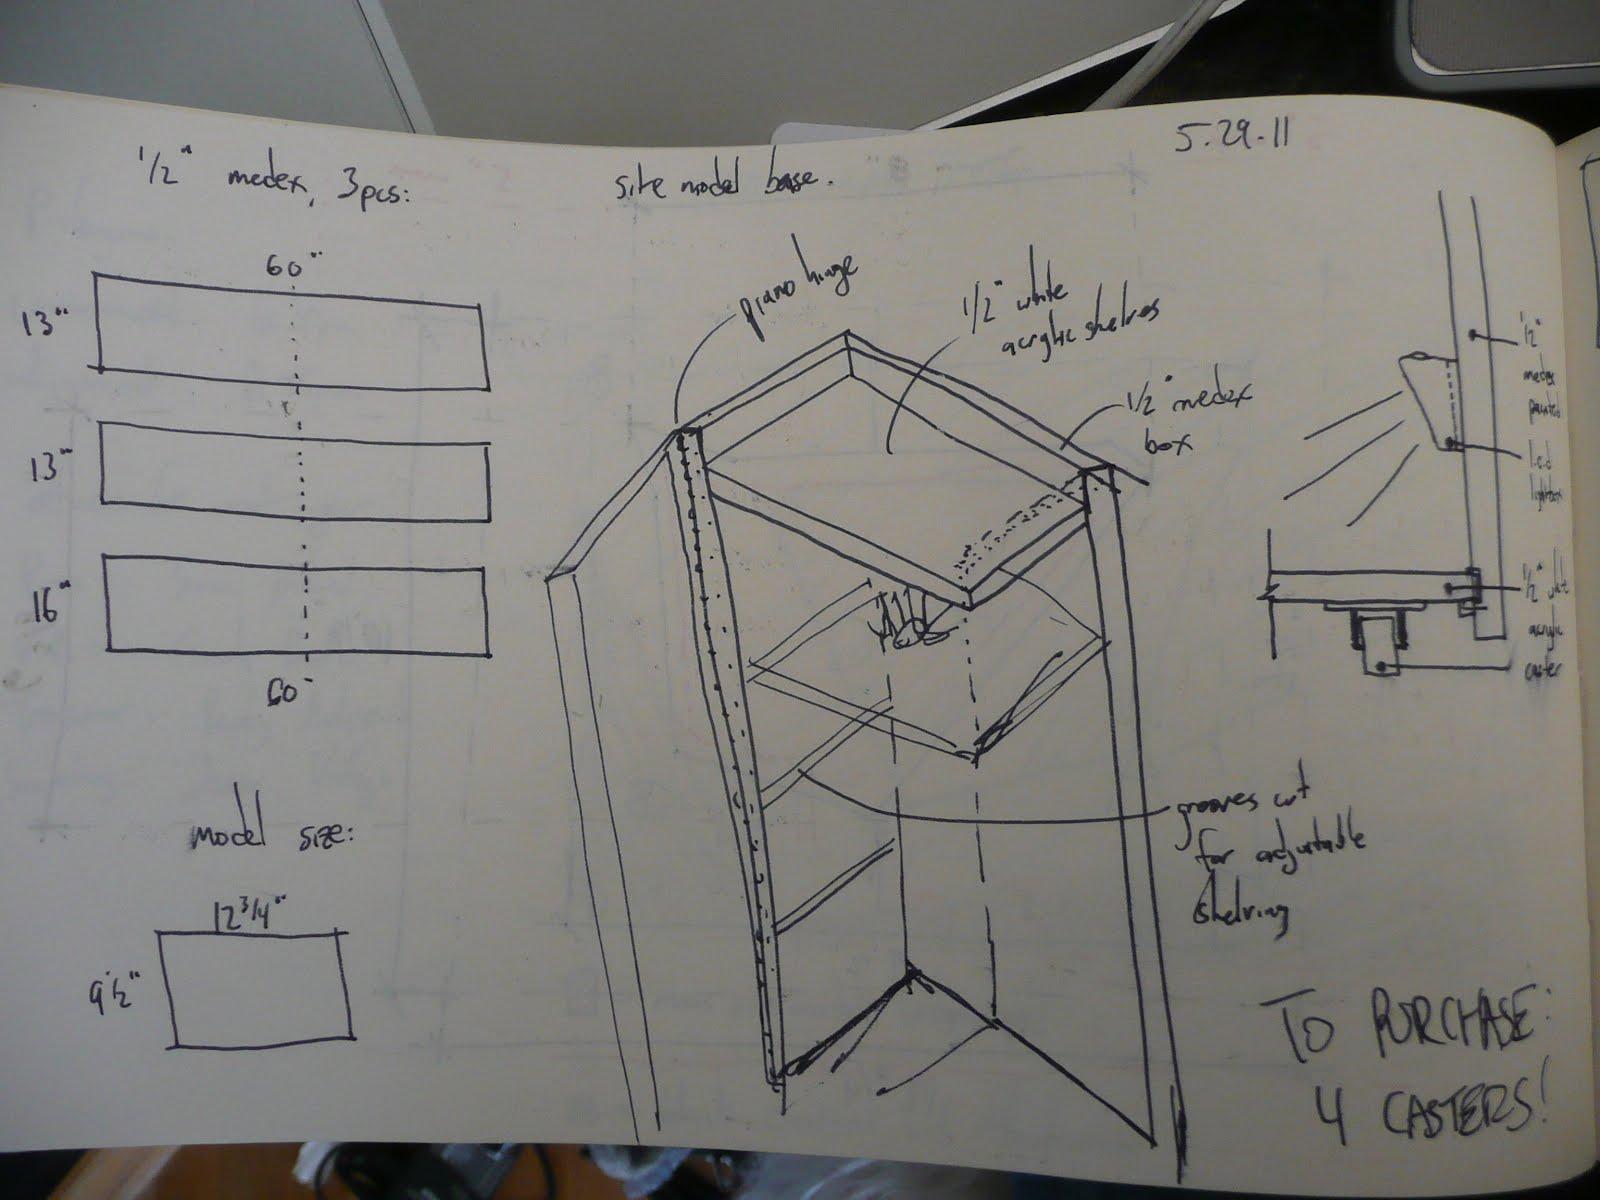 5.29.11
1/2" medex, 3pcs:
site model base.
60"
13"
13"
16"
60"
model size:
12 3/4"
9 1/2"
piano hinge
1/2" white
acrylic shelves
1/2" medex
box
grooves cut
for adjustable
shelving
1/2"
medex
painted
l.e.d
lightbox
1/2"
acrylic
caster
TO PURCHASE:
4 CASTERS!